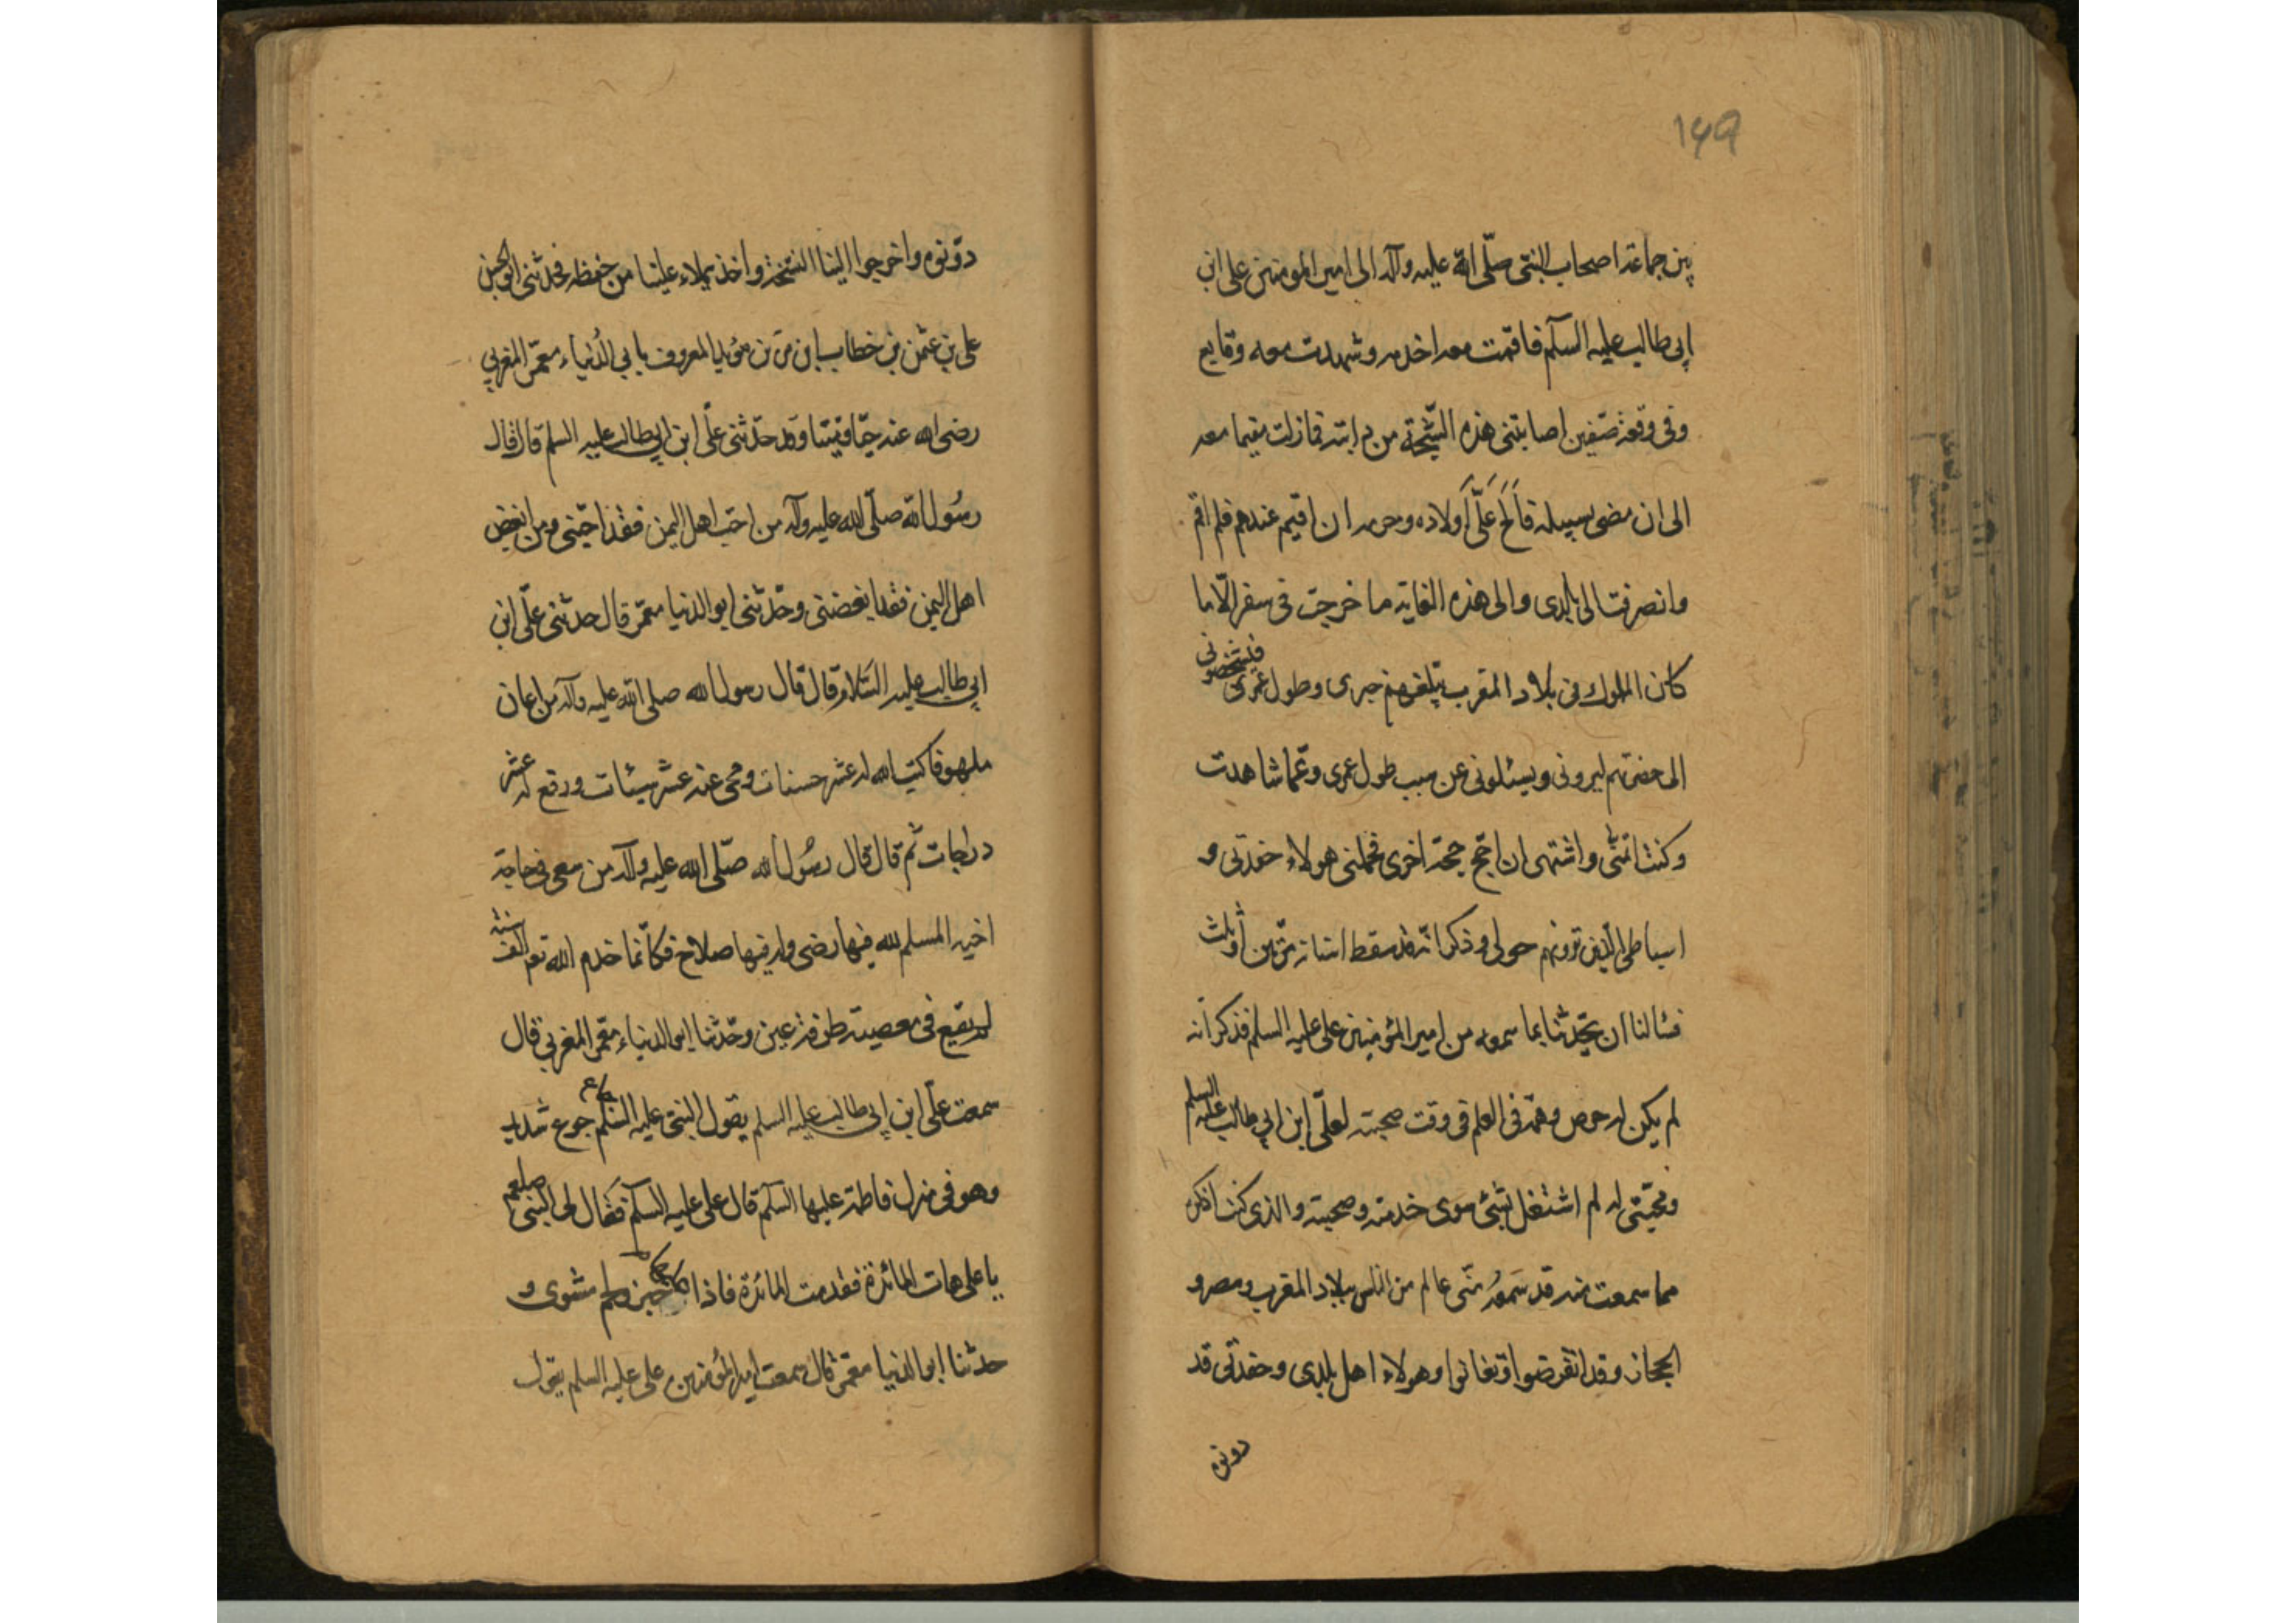 149
بين جماعة اصحاب النبى صلّى الله عليه وآله الى امير المومنين على ابن
ابى طالب عليه السلام فاقمت معه اخدمه وشهدت معه وقايع
وفى وقعة صفين اصابتنى هذه الشّجّة من دابته فما زلت مقيما معه
الى ان مضى بسبيله فالحّ علىّ اولاده وحرمه ان اقيم عندهم فلم اقم
وانصرفت الى بلدى والى هذه الغاية ما خرجت فى سفر الّا ما
كان الملوك فى بلاد المغرب يبلغهم خبرى وطول عمرى فيشخصونى
الى حضرتهم ليرونى ويسئلونى عن سبب طول عمرى وعمّا شاهدت
وكنت اتمنّى واشتهى ان احجّ حجة اخرى فحملنى هولاء حفدتى و
اسباطى الّذين ترونهم حولى وذكر انّه قد سقط اسنانه مرّتين أو ثلث
فسالنا ان يحدّثنا بما سمعه من امير المؤمنين على عليه السلم فذكر انه
لم يكن له حرص وهمّة فى العلم فى وقت صحبته لعلّى ابن ابي طالب عليه السلم
ومحبّتى له لم اشتغل بشئ سوى خدمته وصحبته والذى كنت اذكره
مما سمعت منه قد سمعه منّى عالم من الناس ببلاد المغرب ومصر و
الحجاز وقد انقرضوا وتفانوا وهولاء اهل بلدى وحفدتى قد
دونوه
دوّنوه واخرجوا الينا النسخة واخذ يملاء علينا من حفظه فحدثنى ابو الحسن
على بن عثمن بن خطاب ابن مرّة بن مؤيد المعروف بابي الدُنياء معمّر المغربي
رضى الله عنه حيّا وميّتا وقد حدّثنى علىّ ابن ابي طالب عليه السلم قال قال
رسُول الله صلّى الله عليه وآله من احبّ اهل اليمن فقد احبّنى ومن ابغض
اهل اليمن فقد ابغضنى وحدّثنى ابو الدنيا معمّر قال حدثنى علىّ ابن
ابي طالب عليه السَلام قال قال رسول الله صلى الله عليه وآله من اعان
ملهوفا كتب الله له عشر حسنات ومحى عنه عشر سيئات ورفع له عشر
درجات ثم قال قال رسُول الله صلّى الله عليه وآله من سعى فى حاجة
اخيه المسلم لله فيها رضى وله فيها صلاح فكانّما خدم الله تع الف سنة
لم يقع فى معصيته طرفة عين وحدّثنا ابو الدنياء معمّر المغربي قال
سمعت علىّ ابن ابى طالب عليه السلم يقول النبى عليه السلم جوع شديد
وهو فى منزل فاطمة عليها السلام قال على عليه السلام فقال لى النبى صلعم
يا على هات المائدة فقدمت المائدة فاذا خبز ولحم مشوى و
حدثنا ابو الدنيا معمّر قال سمعت امير المؤمنين على عليه السلم يقول